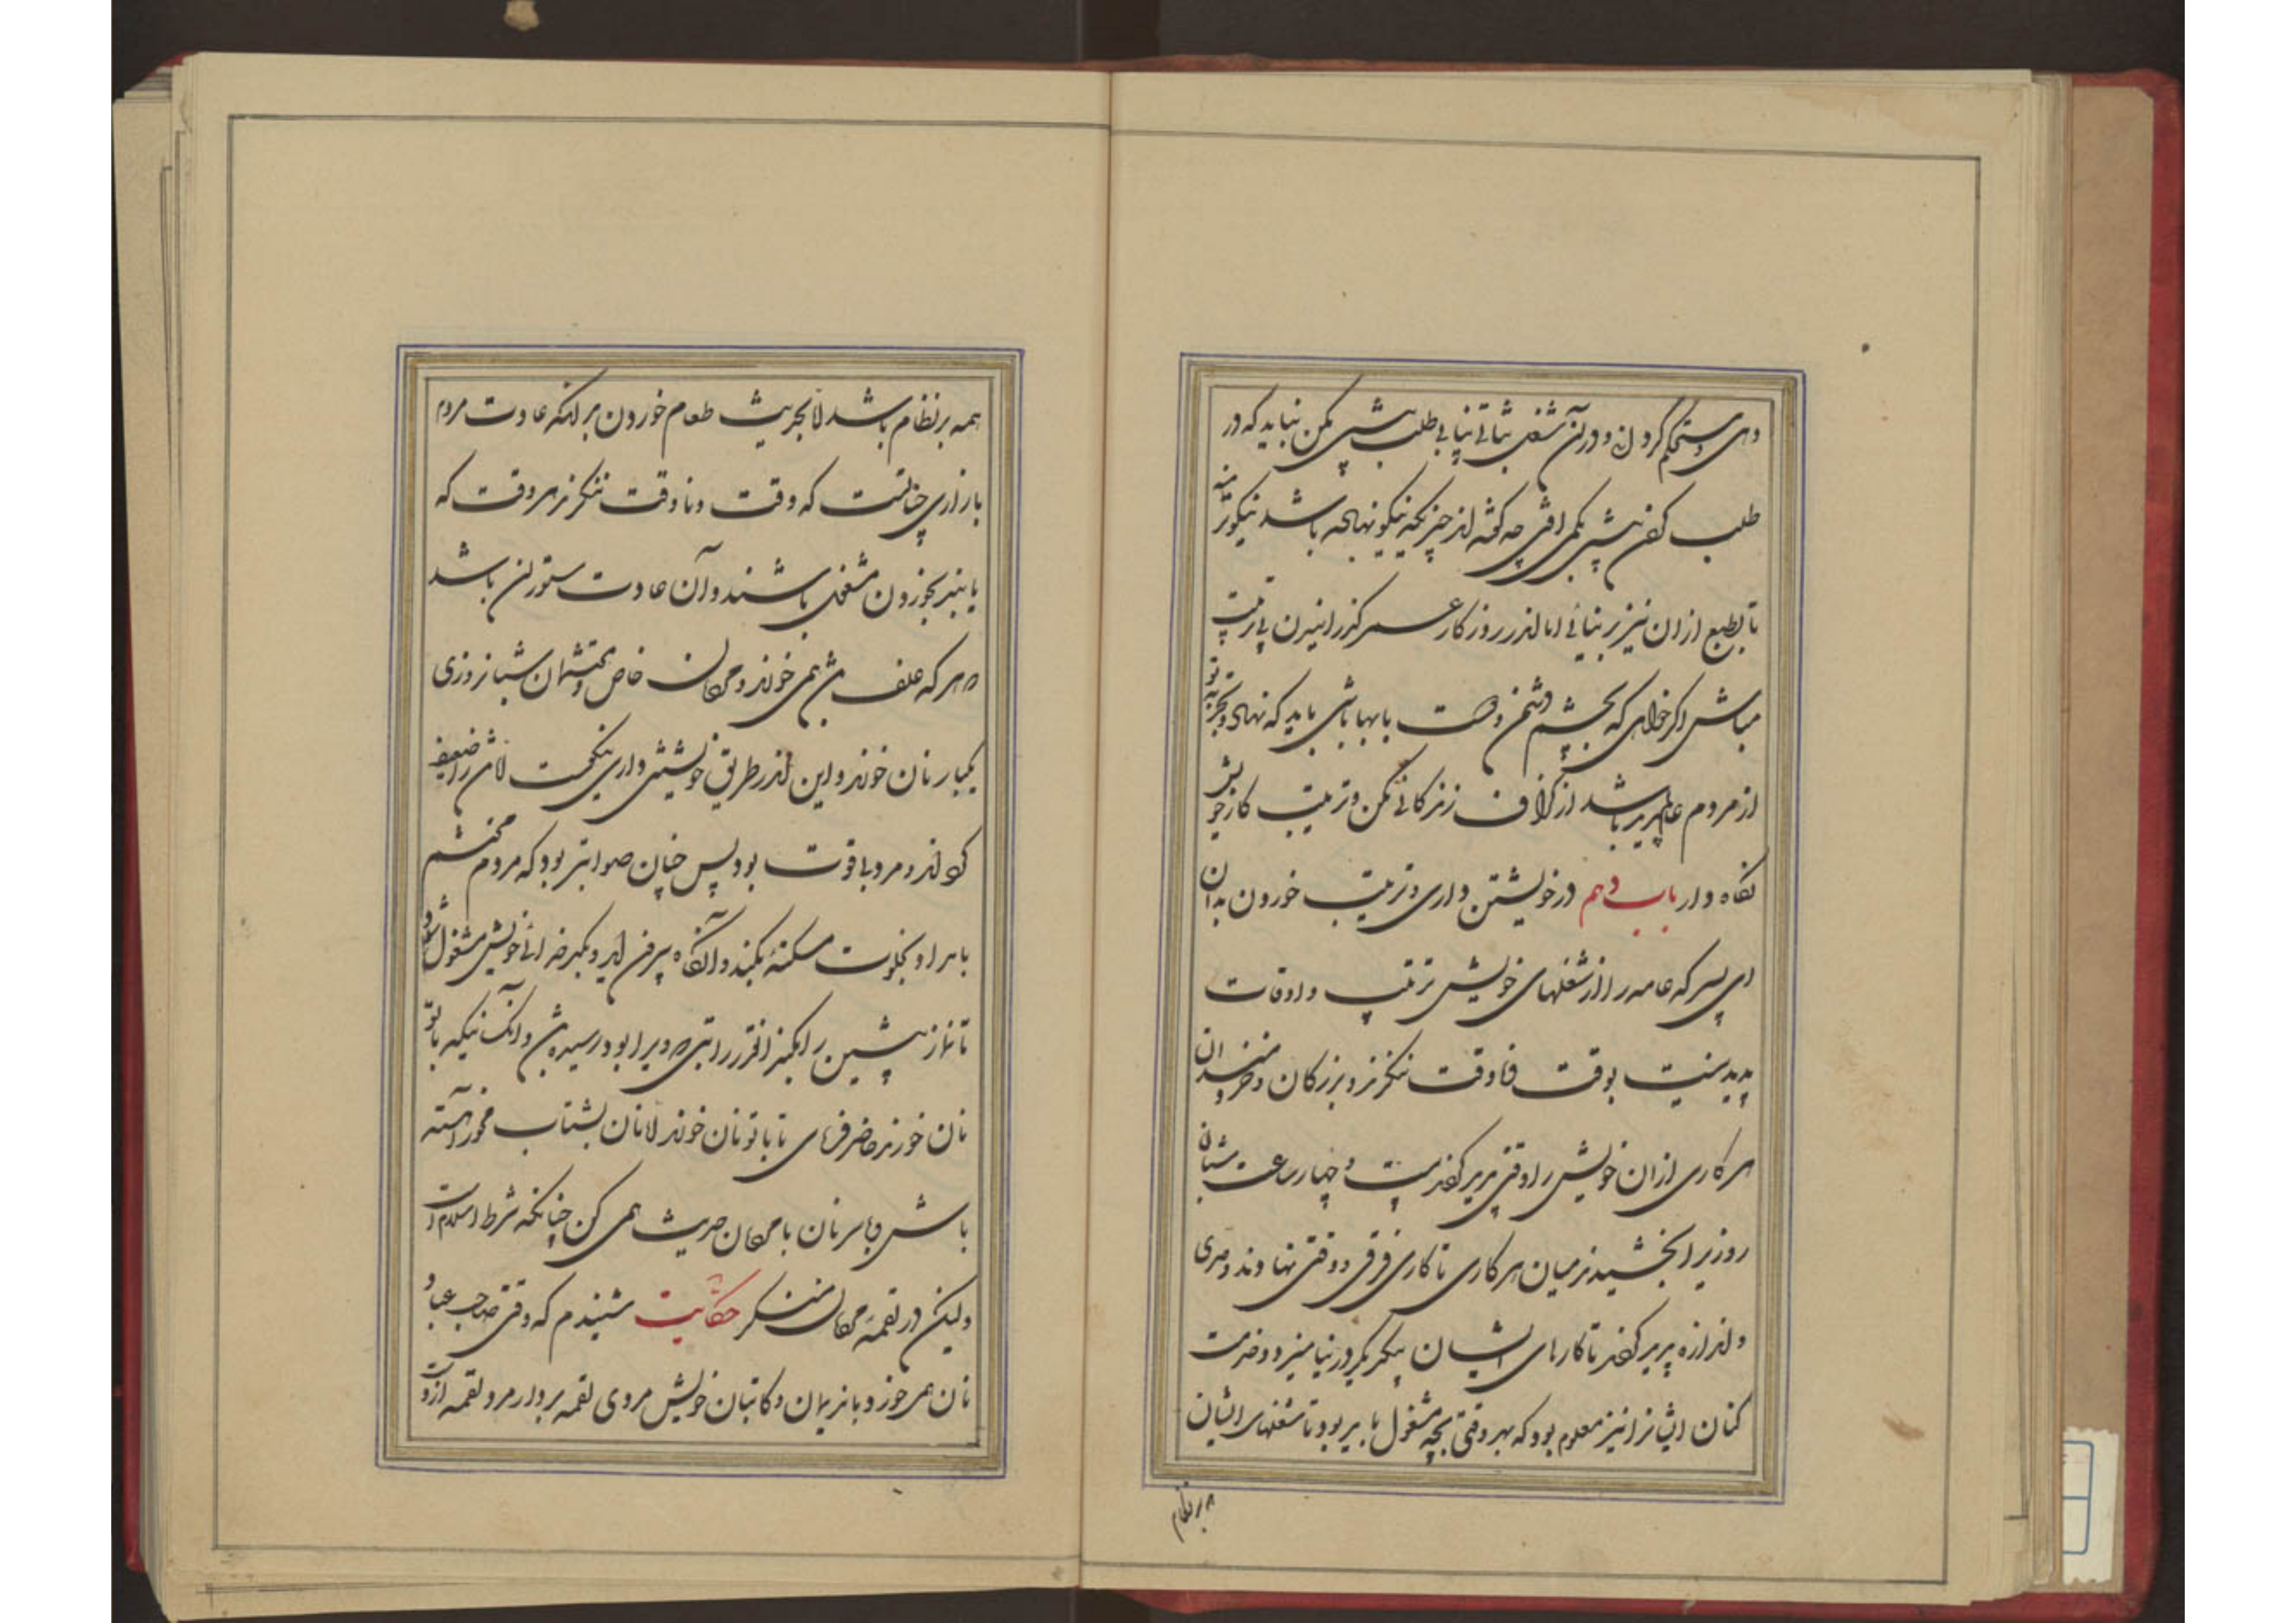 دهی و مستحکم گردان و در آن شغل شتابی نیابی طلب بیشی مکن نباید که در
طلب کردن بیشی بکمی افتی چه گفته‌اند چیزیکه نیکو نهاده باشد نیکوتر منه
تا بطمع از ان نیز برنیائی اما اندر روزگار عمر گذرانیدن بی ترتیب
مباش اگر خواهی که بچشم دشمن و دوست با بها باشی باید که نهاد و تجربه تو
از مردم عام پدید باشد از گزاف زندگانی مکن و ترتیب کار خویش
نگاه دار باب دهم در خویشتن داری و ترتیب خوردن بدان
ای پسر که عامه را از شغلهای خویش ترتیب و اوقات
پدید نیست بوقت و ناوقت ننگرند و بزرگان و خردمندان
هر کاری از ان خویش را وقتی پدید کنند بیست و چهار ساعت شبان
روزیرا بخشیدند میان هر کاری تا کاری فرقی و وقتی نهادند و حدی
و اندازه پدید کنند تا کارهای ایشان بیکدیگر در نیامیزد و خدمت
کنان ایشانرا نیز معلوم بود که بهر وقتی بچه مشغول باید بود تا شغلهای ایشان
همه بر نظام
همه بر نظام باشد اما بحدیث طعام خوردن بدانکه عادت مردم
بازاری چنانست که وقت و ناوقت ننگرند هر وقت که
یابند بخوردن مشغول باشند و آن عادت ستوران باشد
هر که علف همی خورند و مردمان خاص و محتشمان شبانروزی
یکبار نان خورند و این اندر طریق خویشتن داری نیکست اما ضعیف
کند و مرد بی قوت بود پس چنان صوابتر بود که مردم محتشم
بامداد بخلوت مسکنه بکند و آنگاه بیرون آید و بکدخدائی خویش مشغول شود
تا نماز پیشین را بکند آنقدر راتبی ویرا بود رسیده باشد و آنکسانیکه با تو
نان خورند حاضر فرمای تا با تو نان خورند اما نان بشتاب مخور و آهسته
باش و بر سر نان با مردمان حدیث همی کن چنانکه شرط اسلامست
ولیکن در لقمه مردمان منگر حکایت شنیدم که وقتی صاحب عباد
نان همی خورد با ندیمان و کاتبان خویش مردی لقمه برداشت مر و لقمه از دست